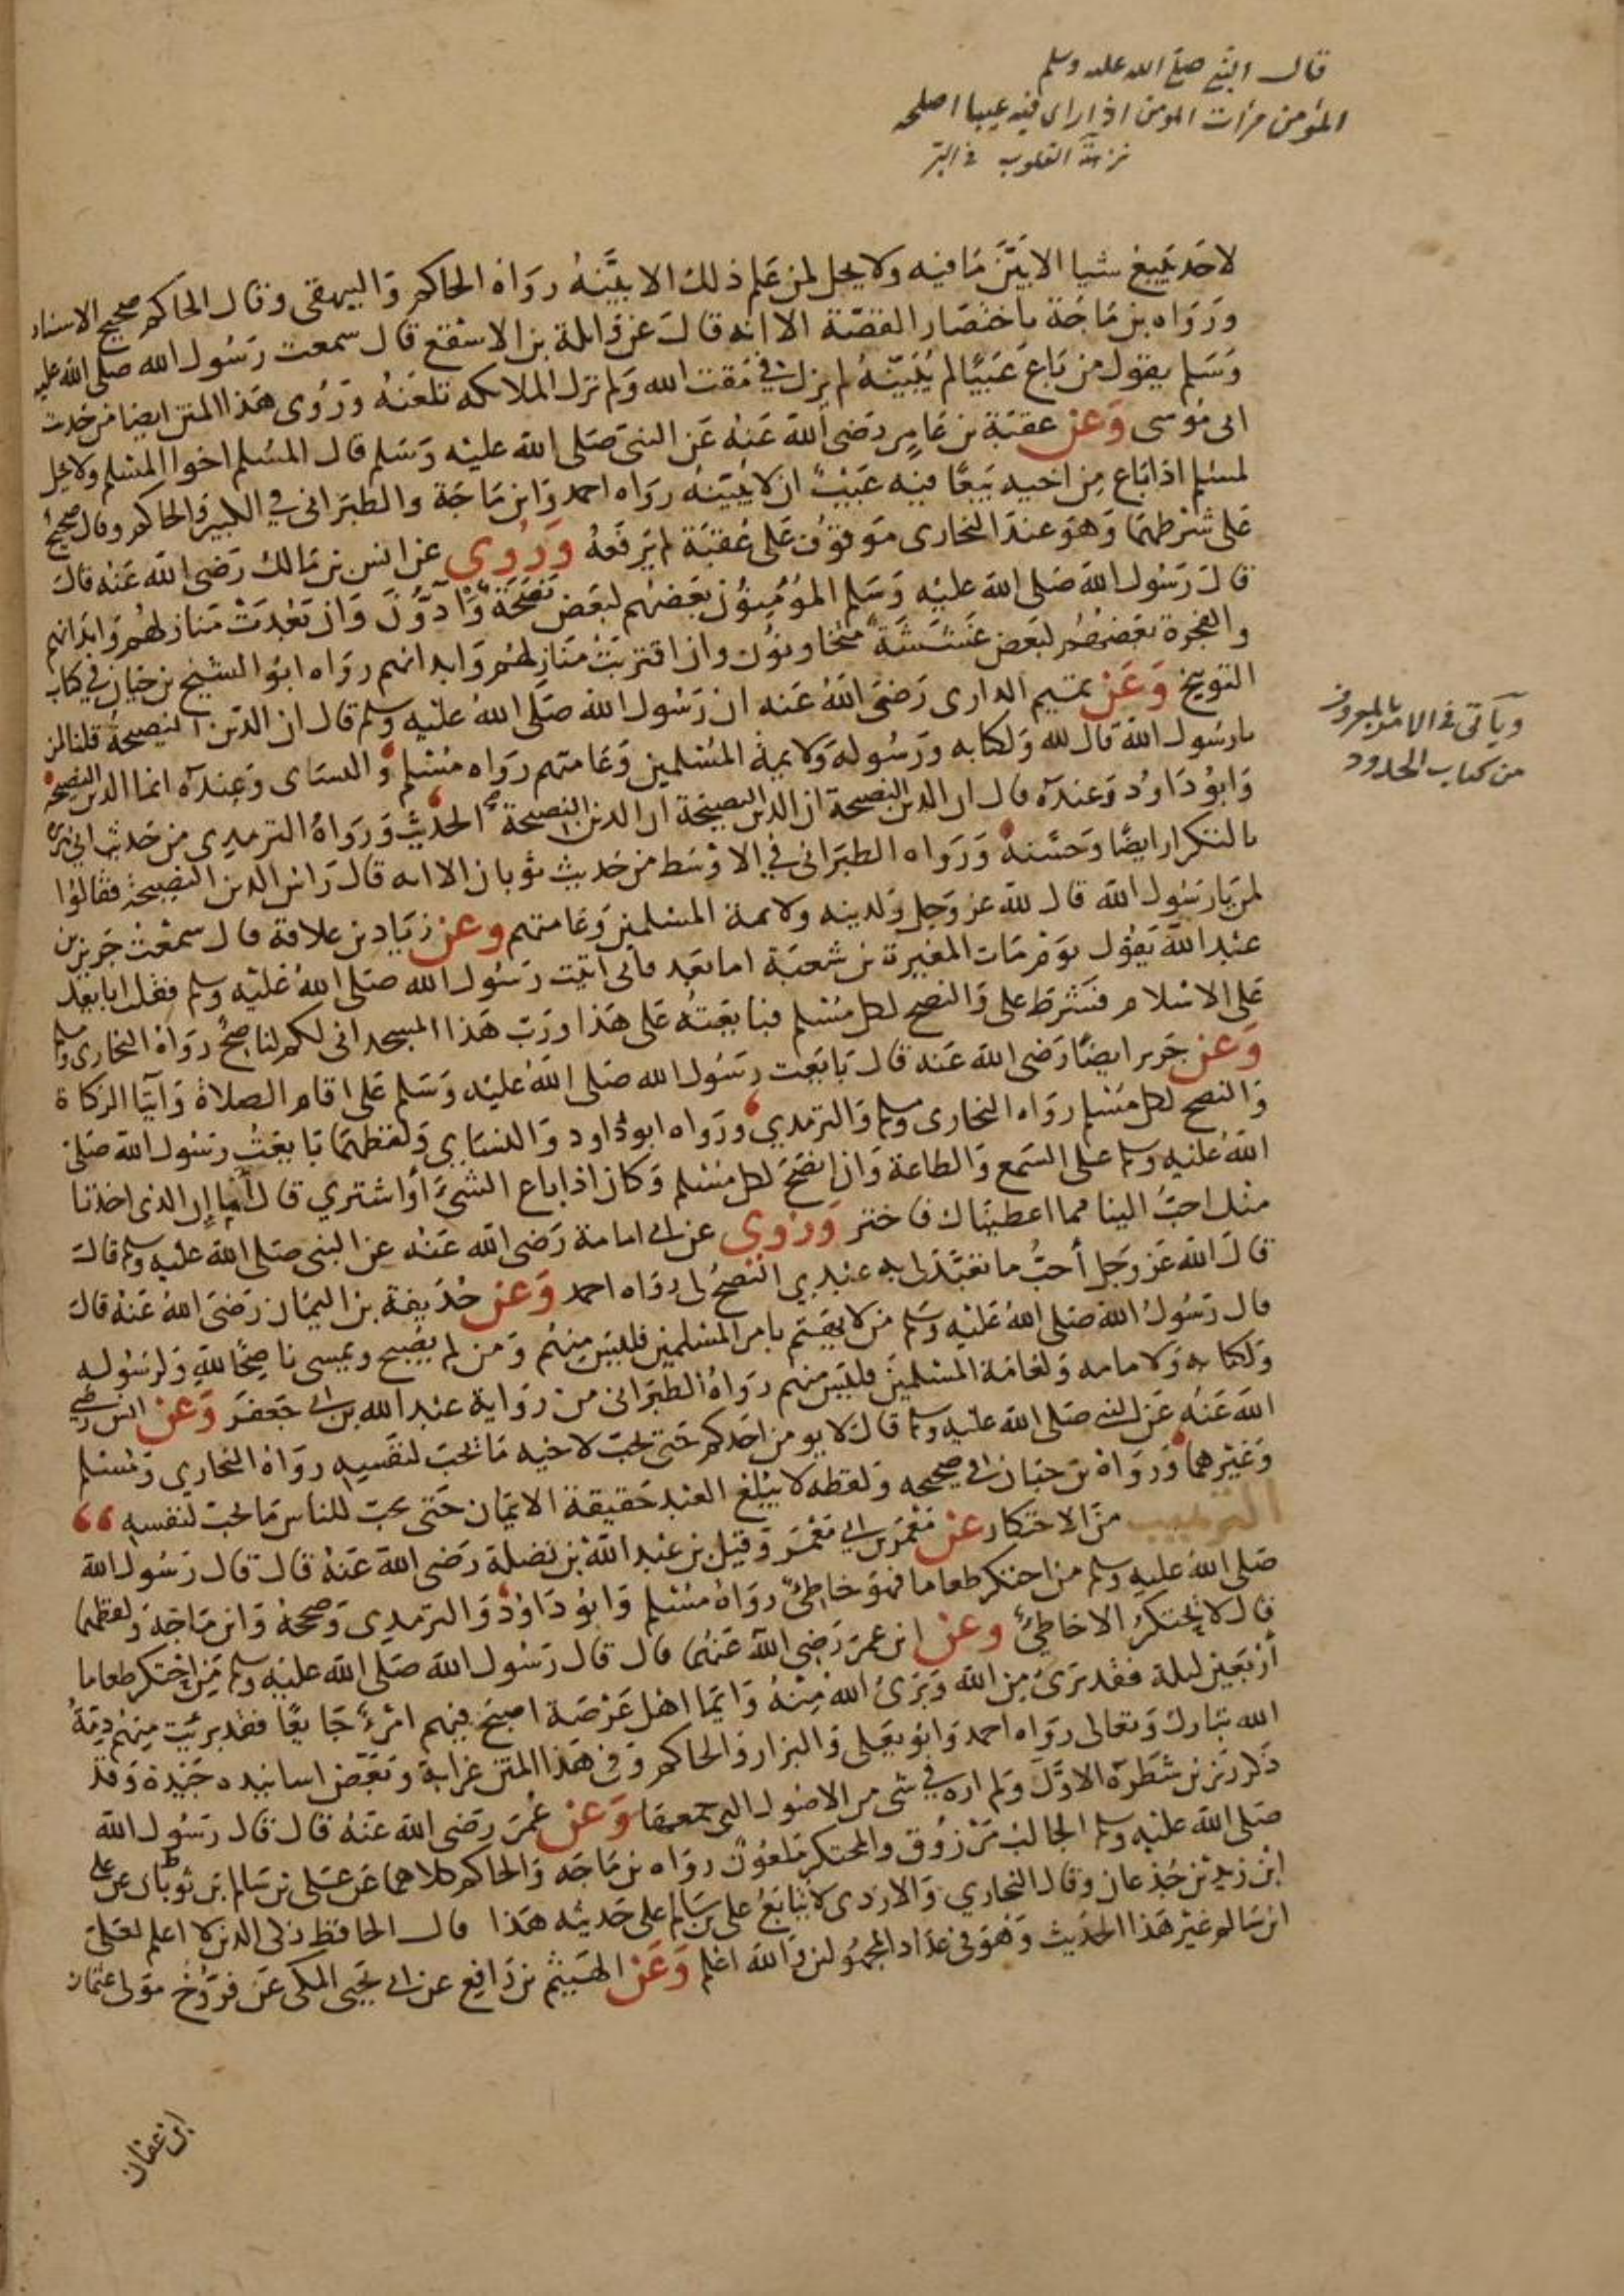 قال النبي صلى الله عليه وسلم
المؤمن مرأت المومن اذا راى فيه عيبا اصلحه
نزهة القلوب في البر
لاحد يبيع شيا الا بيَّن ما فيه ولا يحل لمن علم ذلك الا بيَّنه رواه الحاكم والبيهقى وقال الحاكم صحيح الاسناد
ورواه بن ماجة باختصار القصة الا انه قال عن واثلة بن الاسقع قال سمعت رسول الله صلى الله عليه
وسلم يقول من باع عيبا لم يبينه لم يزل في مقت الله ولم تزل الملائكه تلعنه وروى هذا المتن ايضا من حديث
ابى موسى وعن عقبة بن عامر رضى الله عنه عن النبى صلى الله عليه وسلم قال المسلم اخو المسلم ولا يحل
لمسلم اذا باع من اخيه بيعا فيه عيب ان لا يبينه رواه احمد وابن ماجة والطبرانى في الكبير والحاكم وقال صحيح
على شرطهما وهو عند البخارى موقوف على عقبة لم يرفعه وروى عن انس بن مالك رضى الله عنه قال
قال رسول الله صلى الله عليه وسلم المؤمنون بعضهم لبعض نصحة وادون وان بعدت منازلهم وابدانهم
والفجرة بعضهم لبعض غششة متخاونون وان اقتربت منازلهم وابدانهم رواه ابو الشيخ بن حيان في كتاب
التوبيخ وعن تميم الدارى رضى الله عنه ان رسول الله صلى الله عليه وسلم قال ان الدين النصيحة قلنا لمن
يا رسول الله قال لله ولكتابه ورسوله ولايمة المسلمين وعامتهم رواه مسلم والنساى وعنده انما الدين النصيحة
وابو داود وعنده قال ان الدين النصيحة ان الدين النصيحة ان الدين النصيحة الحديث ورواه الترمدى من حديث ابى هريرة
بالتكرار ايضا وحسنه ورواه الطبرانى في الاوسط من حديث ثوبان الا انه قال راس الدين النصيحة فقالوا
لمن يا رسول الله قال لله عز وجل ولدينه ولايمة المسلمين وعامتهم وعن زياد بن علاقة قال سمعت جرير بن
عبد الله يقول يوم مات المغيرة بن شعبة اما بعد فانى اتيت رسول الله صلى الله عليه وسلم فقلت ابايعك
على الاسلام فشرط على والنصح لكل مسلم فبايعته على هذا ورب هذا المسجد انى لكم لناصح رواه البخارى ومسلم
وعن جرير ايضا رضى الله عنه قال بايعت رسول الله صلى الله عليه وسلم على اقام الصلاة وايتا الزكاة
والنصح لكل مسلم رواه البخارى ومسلم والترمدي ورواه ابو داود والنساي ولفظهما بايعت رسول الله صلى
الله عليه وسلم على السمع والطاعة وان انصح لكل مسلم وكان اذا باع الشيء أو اشتري قال أما إن الذى اخذنا
منك احبُّ الينا مما اعطيناك فاختر وروى عن ابى امامة رضى الله عنه عن النبى صلى الله عليه وسلم قال
قال الله عز وجل أحبُّ ما تعبَّد لى به عبدي النصح لى رواه احمد وعن حذيفة بن اليمان رضى الله عنه قال
قال رسول الله صلى الله عليه وسلم من لا يهتم بامر المسلمين فليس منهم ومن لم يصبح ويمسى ناصحا لله ولرسوله
ولكتابه ولامامه ولعامة المسلمين فليس منهم رواه الطبرانى من رواية عبد الله بن ابى جعفر وعن انس رضى
الله عنه عن النبى صلى الله عليه وسلم قال لا يومن احدكم حتى يحب لاخيه ما يحب لنفسه رواه البخاري ومسلم
وغيرهما ورواه بن حبان في صحيحه ولفظه لا يبلغ العبد حقيقة الايمان حتى يحب للناس ما يحب لنفسه
الترهيب من الاحتكار عن معمر بن ابى معمر وقيل بن عبد الله بن نضلة رضى الله عنه قال قال رسول الله
صلى الله عليه وسلم من احتكر طعاما فهو خاطئ رواه مسلم وابو داود والترمدى وصححه وابن ماجة ولفظهما
قال لا يحتكر الا خاطئ وعن ابن عمر رضى الله عنهما قال قال رسول الله صلى الله عليه وسلم من احتكر طعاما
أربعين ليلة فقد برئ من الله وبرئ الله منه وايما اهل عرصة اصبح فيهم امرء جايعا فقد برئت منهم ذمة
الله تبارك وتعالى رواه احمد وابو يعلى والبزار والحاكم وفى هذا المتن غرابة وبعض اسانيده جيدة وقد
ذكر رزين شطره الاول ولم اره في شى من الاصول التى جمعها وعن عمر رضى الله عنه قال قال رسول الله
صلى الله عليه وسلم الجالب مرزوق والمحتكر ملعون رواه بن ماجه والحاكم كلاهما عن على بن سالم بن ثوبان عن على
ابن زيد بن جذعان وقال البخاري والازدى لا يتابع على بن سالم على حديثه هذا قال الحافظ زكى الدين لا اعلم لعلى
ابن سالم غير هذا الحديث وهو فى عداد المجهولين والله اعلم وعن الهيثم بن رافع عن ابى يحيى المكى عن فرُّوخ مولى عثمان
ابن عفان
ويأتى في الامر بالمعروف
من كتاب الحدود